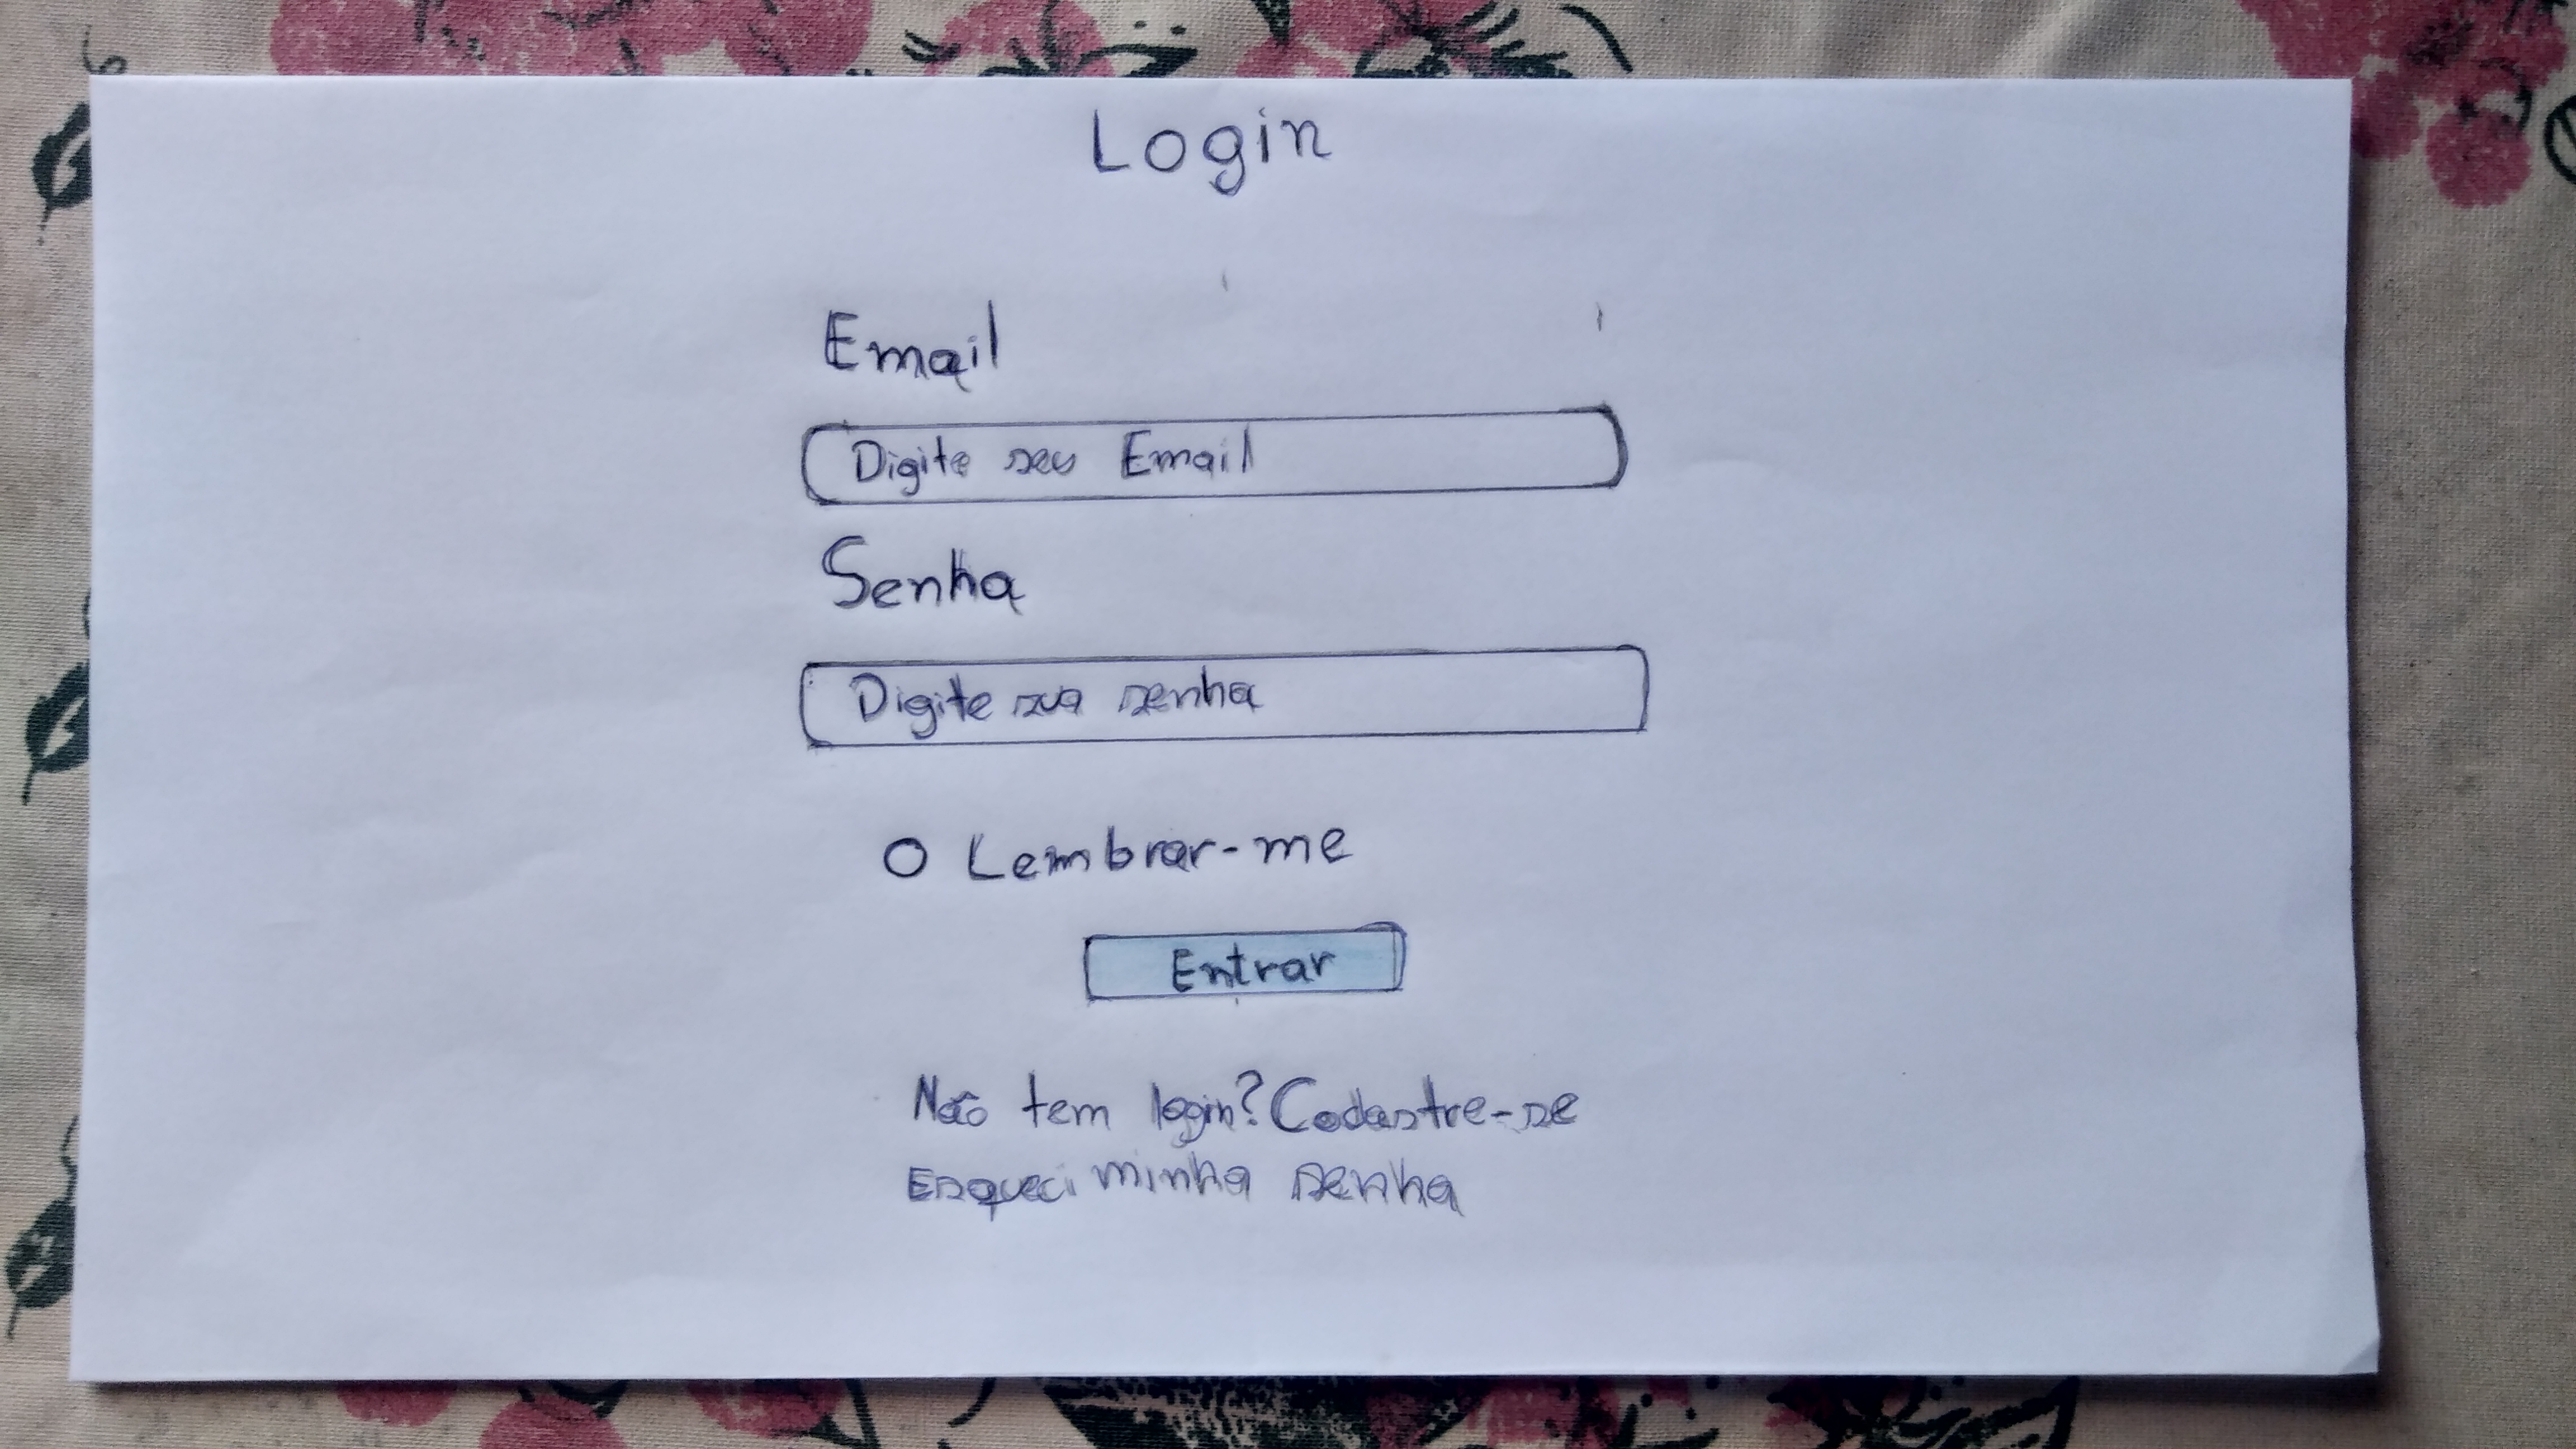 Login
Email
Digite seu Email
Senha
Digite sua senha
Lembrar-me
Entrar
Não tem login? Cadastre-se
Esqueci minha senha